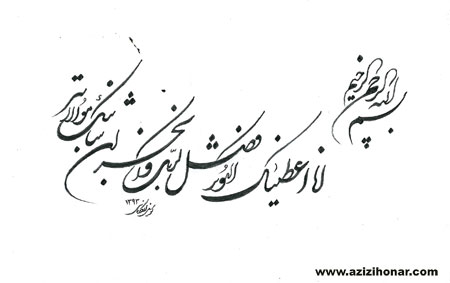 بسم الله الرحمن الرحیم
انا اعطیناک الکوثر فصل لربک وانحر ان شانئک هو الابتر
۱۳۹۳
www.azizihonar.com